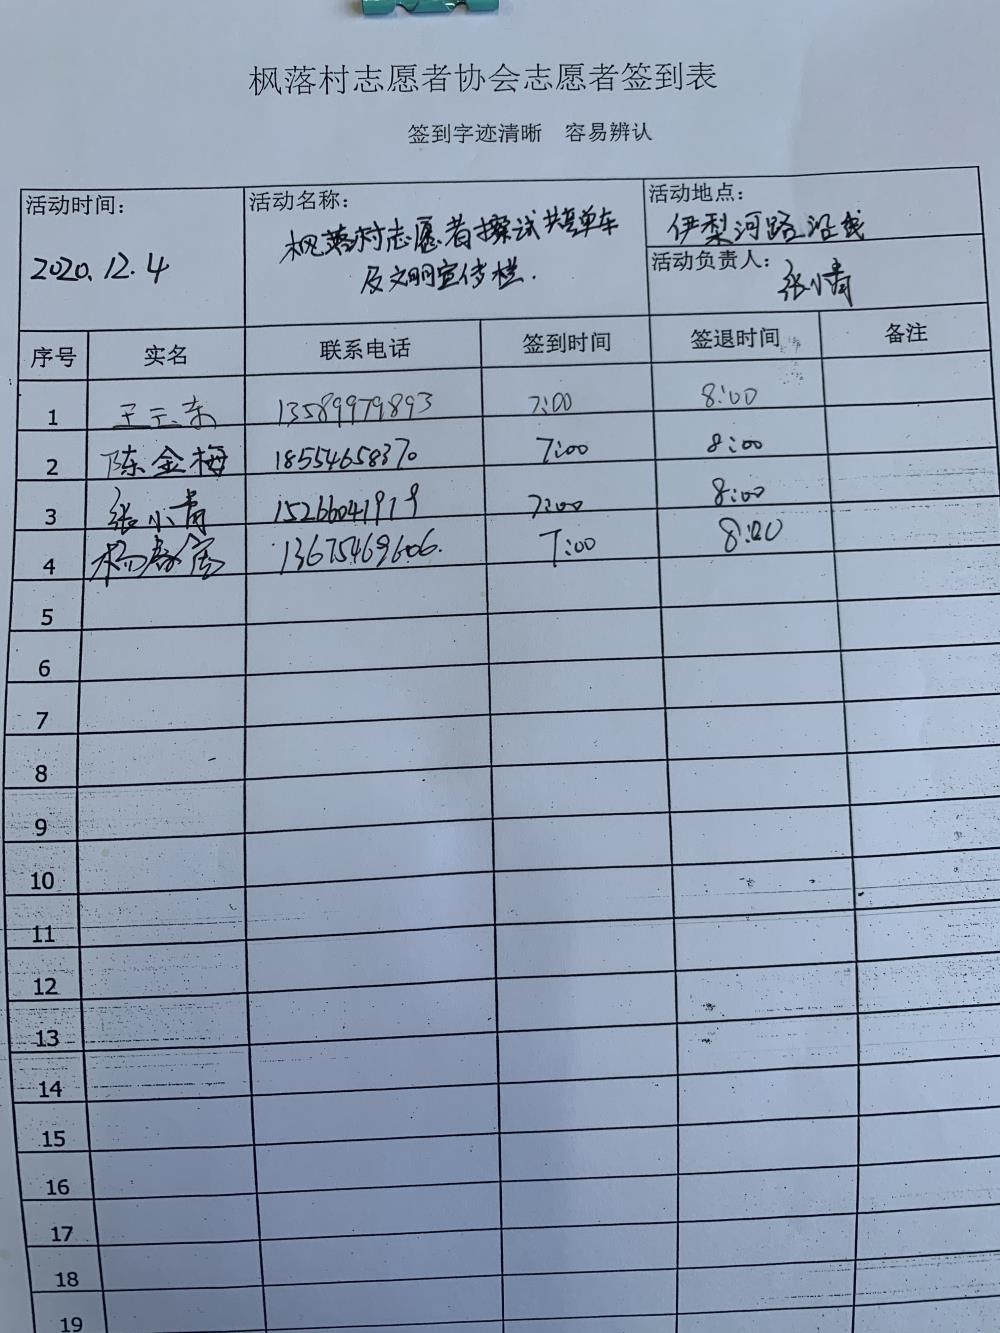 枫落村志愿者协会志愿者签到表
签到字迹清晰 容易辨认
活动时间： 活动名称： 活动地点：
2020.12.4 枫落村志愿者擦试共享单车 伊犁河路沿线
及文明宣传栏. 活动负责人：
张小青
序号 实名 联系电话 签到时间 签退时间 备注
1 王云东 13589979893 7:00 8:00
2 陈金梅 18554658370 7:00 8:00
3 张小青 15266041919 7:00 8:00
4 杨春 13675469606. 7:00 8:00
5
6
7
8
9
10
11
12
13
14
15
16
17
18
19